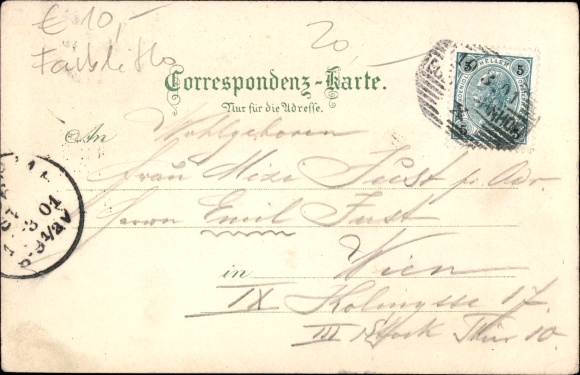 € 10,-
20 -
Farblitho
Correspondenz-Karte.
Nur für die Adresse.
An Wohlgeboren
Frau Mizi Fust pr. Adr.
Herrn Emil Fust
in Wien
IX Kolingasse 17.
III Stock Thür 10.
5 HELLER 5
01